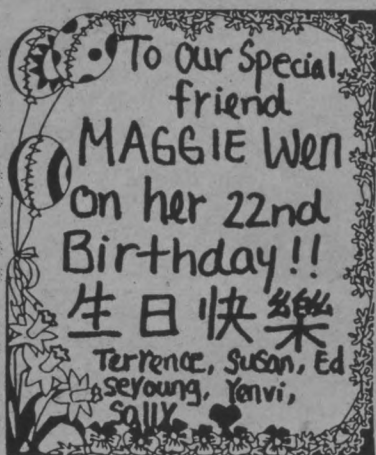 To Our Special
friend
MAGGIE Wen
on her 22nd
Birthday!!
生日快樂
Terrence, Susan, Ed
Seyoung, Yenvi,
Sally